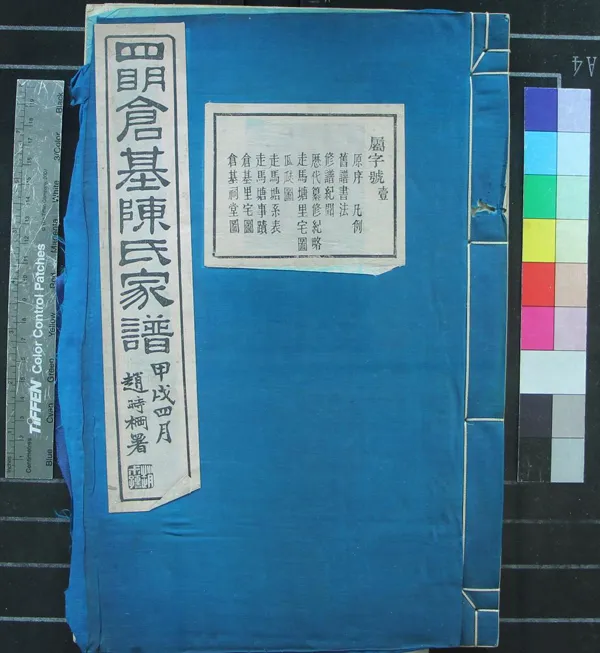 四明倉基陳氏家譜
甲戌四月
趙時棡署
屬字號壹
原序 凡例
舊譜書法
修譜紀聞
歷代纂修紀略
走馬塘里宅圖
瓜瓞圖
走馬塘系表
走馬塘事蹟
倉基里宅圖
倉基祠堂圖
TIFFEN Color Control Patches
Blue
Cyan
Green
Yellow
Red
Magenta
White
3/Color
Black
Centimetres
Inches
A4